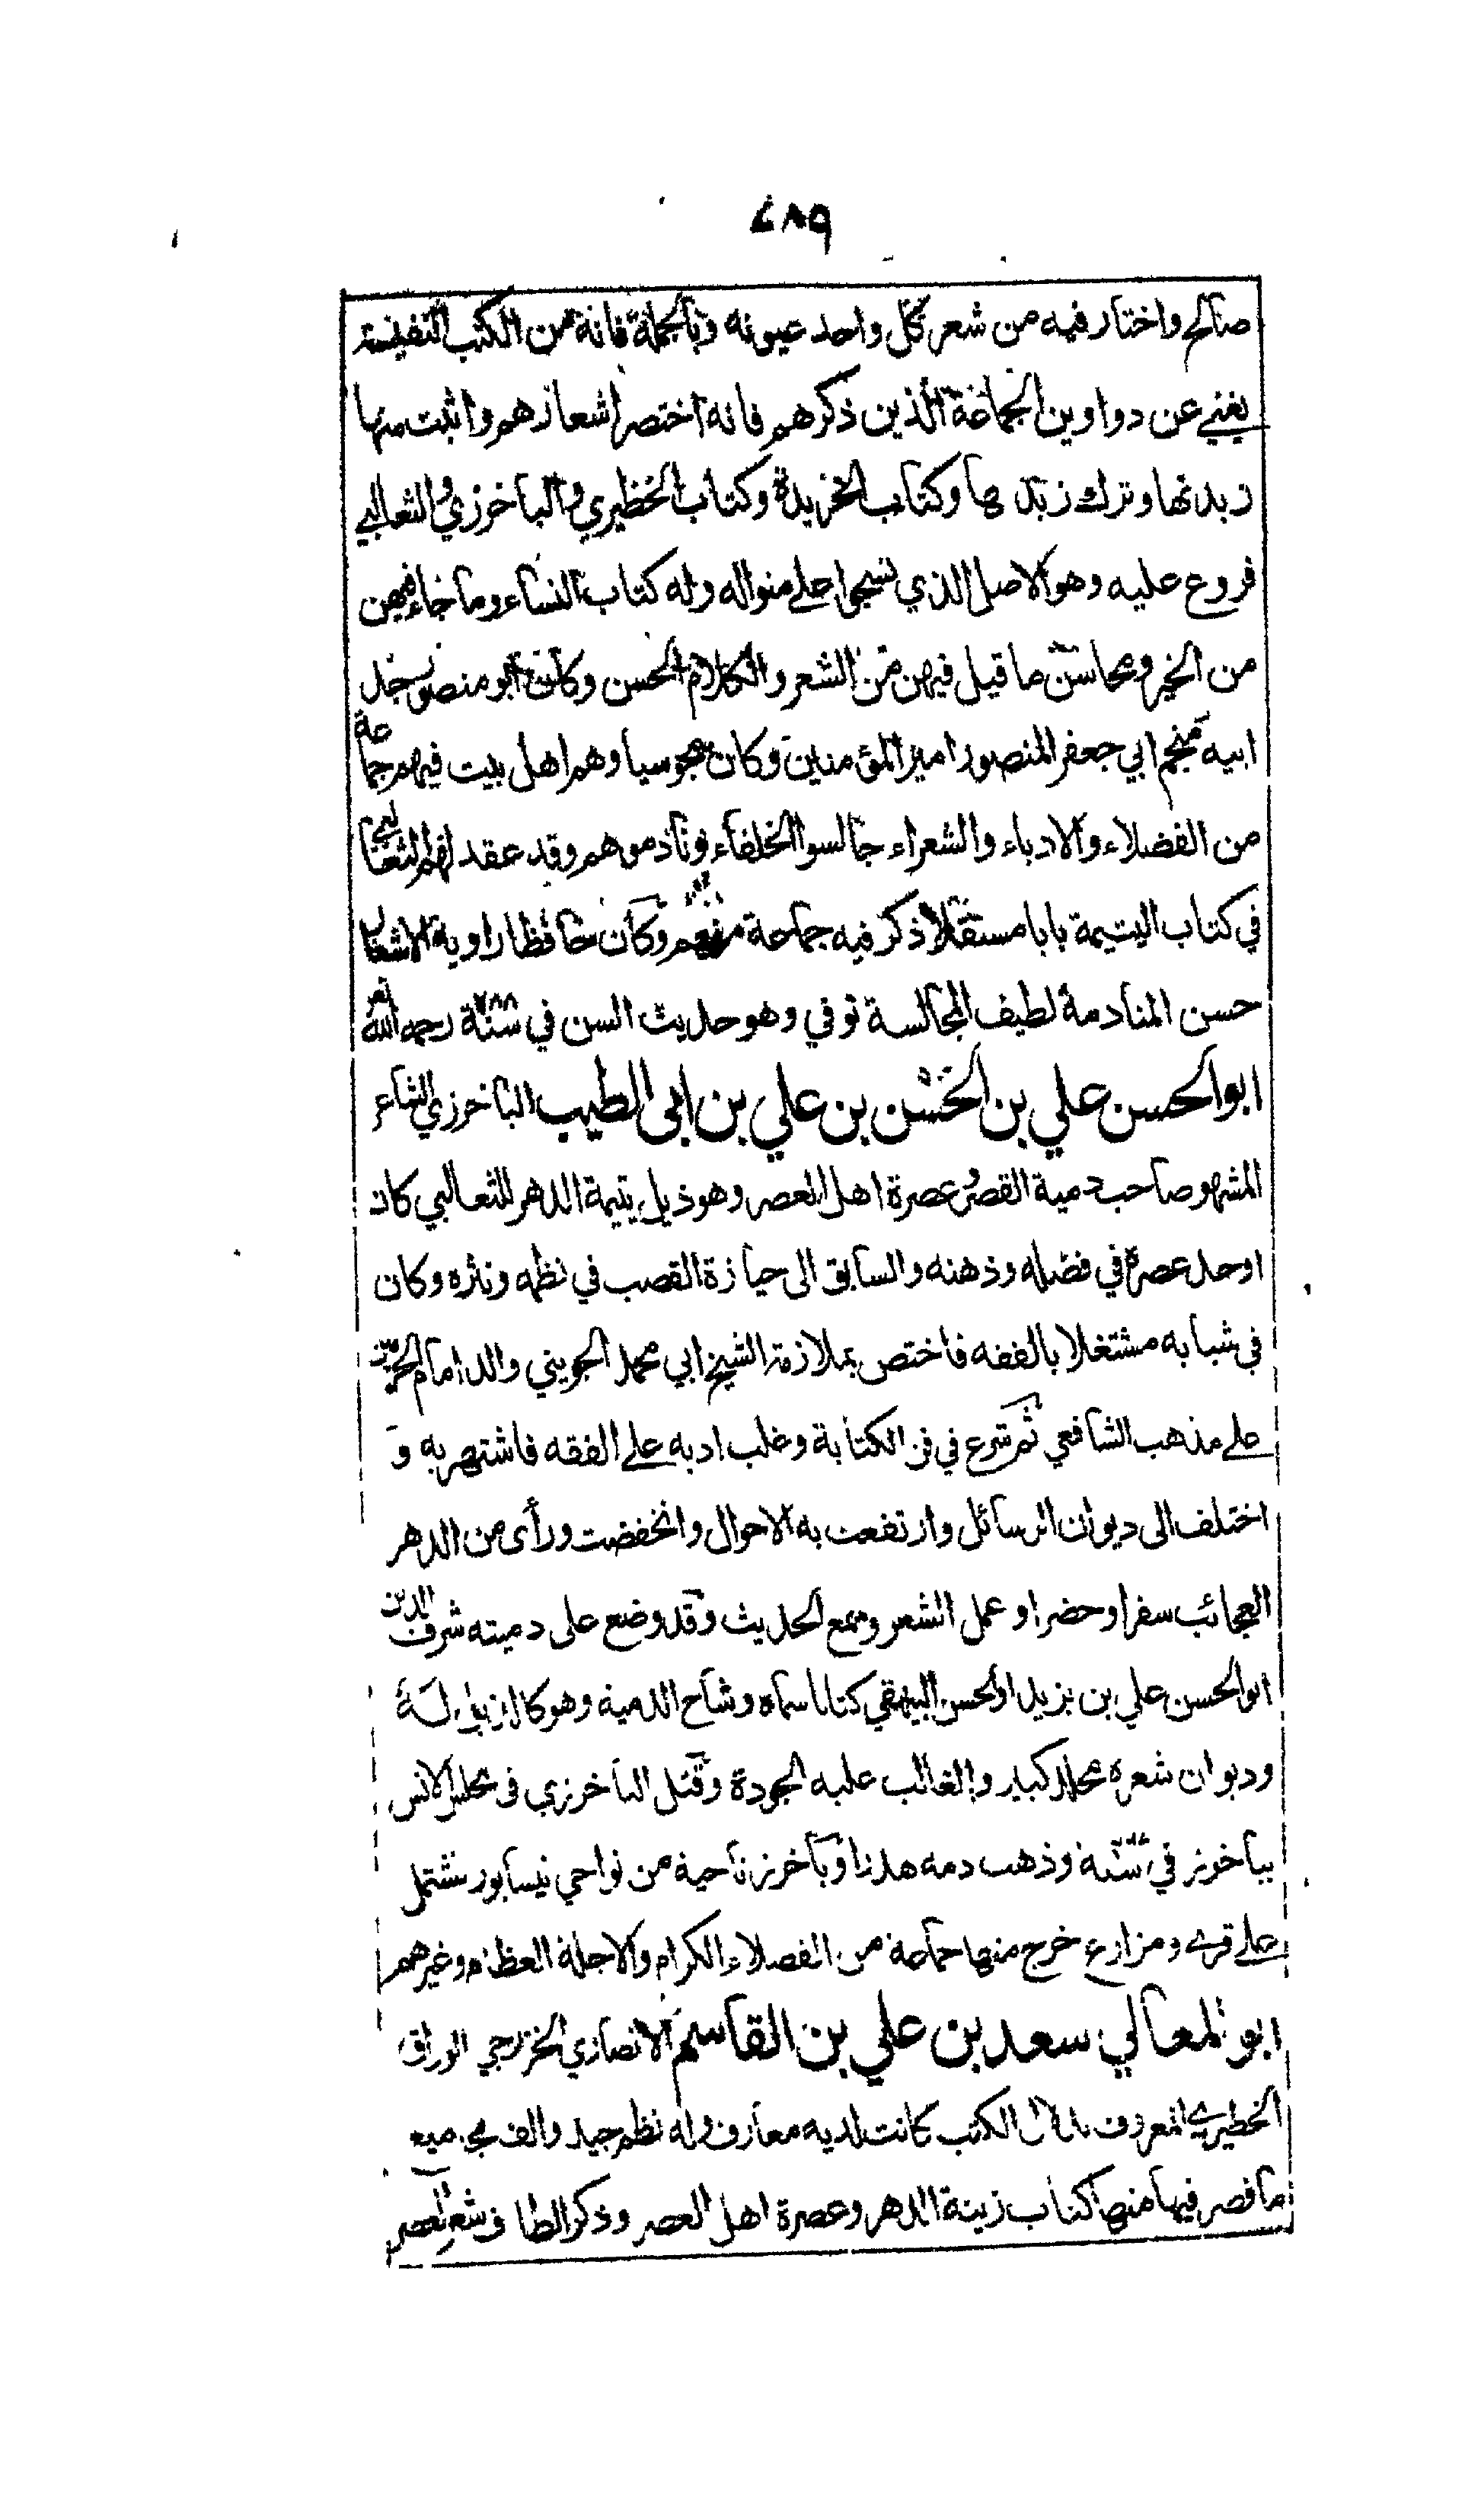 ٧٨٩
صالح واختار فيه من شعر كل واحد عيونه وبالجملة فانه من الكتب النفيسة
يغني عن دواوين الجماعة الذين ذكرهم فانه اختصر اشعارهم واثبت منها
زبدتها وترك زبدها وكتاب الخريدة وكتاب الخظيري والباخرزي والثعالبي
فروع عليه وهو الاصل الذي نسجوا على منواله وله كتاب النساء وما جاء فيهن
من الخير ومحاسن ما قيل فيهن من الشعر والكلام الحسن وكان ابو منصور جد
ابيه منجم ابي جعفر المنصور امير المؤمنين وكان مجوسيا وهم اهل بيت فيهم جماعة
من الفضلاء والادباء والشعراء جالسوا الخلفاء ونادموهم وقد عقد لهم الثعالبي
في كتاب اليتيمة بابا مستقلا ذكر فيه جماعة منهم وكان حافظا راوية الاشعار
حسن المنادمة لطيف المجالسة توفي وهو حديث السن في سنة ٢٨٨ رحمه الله
ابو الحسن علي بن الحسن بن علي بن ابى الطيب الباخرزي الشاعر
المشهو صاحب دمية القصر وعصرة اهل العصر وهو ذيل يتيمة الدهر للثعالبي كان
اوحد عصره في فضله وذهنه والسابق الى حيازة القصب في نظمه ونثره وكان
في شبابه مشتغلا بالفقه فاختص بملازمة الشيخ ابي محمد الجويني والد امام الحرمين
على مذهب الشافعي ثم شرع في فن الكتابة وغلب ادبه على الفقه فاشتهر به و
اختلف الى ديوان الرسائل وارتفعت به الاحوال وانخفضت ورأى من الدهر
العجائب سفرا وحضرا وعمل الشعر وسمع الحديث وقد وضع على دميته شرف الدين
ابو الحسن علي بن يزيد ابو الحسن البيهقي كتابا سماه وشاح الدمية وهو كالذيل له
وديوان شعره مجلد كبير والغالب عليه الجودة وقتل الباخرزي في مجلس الانس
بباخرز في سنة وذهب دمه هدرا وباخرز ناحية من نواحي نيسابور تشتمل
على قرى ومزارع خرج منها جماعة من الفضلاء الكرام والاجلة العظام وغيرهم
ابو المعالي سعد بن علي بن القاسم الانصاري الخزرجي الوراق
الخطيري المعروف بدلال الكتب كانت لديه معارف وله نظم جيد والف مجاميع
ما قصر فيها منها كتاب زينة الدهر وعصرة اهل العصر وذكر الطاف شعر العصر